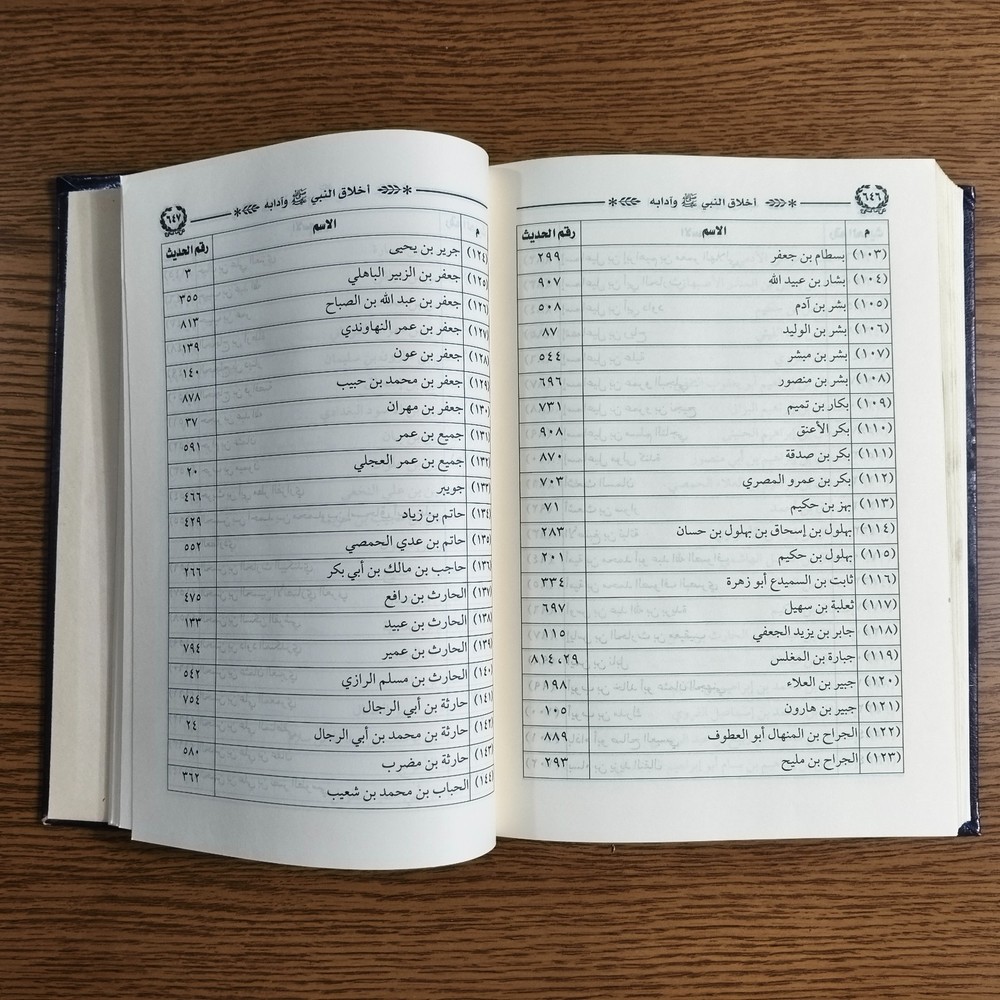 ٦٤٦ أخلاق النبي ﷺ وآدابه
م الاسم رقم الحديث
(١٠٣) بسطام بن جعفر ٢٩٩
(١٠٤) بشار بن عبيد الله ٩٠٧
(١٠٥) بشر بن آدم ٥٠٨
(١٠٦) بشر بن الوليد ٨٧
(١٠٧) بشر بن مبشر ٥٤٤
(١٠٨) بشر بن منصور ٦٩٦
(١٠٩) بكار بن تميم ٧٣١
(١١٠) بكر الأعنق ٩٠٨
(١١١) بكر بن صدقة ٨٧٠
(١١٢) بكر بن عمرو المصري ٧٠٣
(١١٣) بهز بن حكيم ٧١
(١١٤) بهلول بن إسحاق بن بهلول بن حسان ٢٨٣
(١١٥) بهلول بن حكيم ٢٠١
(١١٦) ثابت بن السميدع أبو زهرة ٣٣٤
(١١٧) ثعلبة بن سهيل ٦٩٧
(١١٨) جابر بن يزيد الجعفي ١١٥
(١١٩) جبارة بن المغلس ٨١٤،٢٩
(١٢٠) جبير بن العلاء ١٩٨
(١٢١) جبير بن هارون ١٠٥
(١٢٢) الجراح بن المنهال أبو العطوف ٨٨٩
(١٢٣) الجراح بن مليح ٢٩٣
أخلاق النبي ﷺ وآدابه ٦٤٧
م الاسم رقم الحديث
(١٢٤) جرير بن يحيى ٣
(١٢٥) جعفر بن الزبير الباهلي ٣٥٥
(١٢٦) جعفر بن عبد الله بن الصباح ٨١٣
(١٢٧) جعفر بن عمر النهاوندي ١٣٩
(١٢٨) جعفر بن عون ١٤٠
(١٢٩) جعفر بن محمد بن حبيب ٨٧٨
(١٣٠) جعفر بن مهران ٣٧
(١٣١) جميع بن عمر ٥٩١
(١٣٢) جميع بن عمر العجلي ٢٠
(١٣٣) جويبر ٤٦٦
(١٣٤) حاتم بن زياد ٤٢٩
(١٣٥) حاتم بن عدي الحمصي ٥٥٢
(١٣٦) حاجب بن مالك بن أبي بكر ٢٦٦
(١٣٧) الحارث بن رافع ٤٧٥
(١٣٨) الحارث بن عبيد ١٣٣
(١٣٩) الحارث بن عمير ٧٩٤
(١٤٠) الحارث بن مسلم الرازي ٥٤٢
(١٤١) حارثة بن أبي الرجال ٧٥٤
(١٤٢) حارثة بن محمد بن أبي الرجال ٢٤
(١٤٣) حارثة بن مضرب ٥٨٠
(١٤٤) الحباب بن محمد بن شعيب ٣٦٢